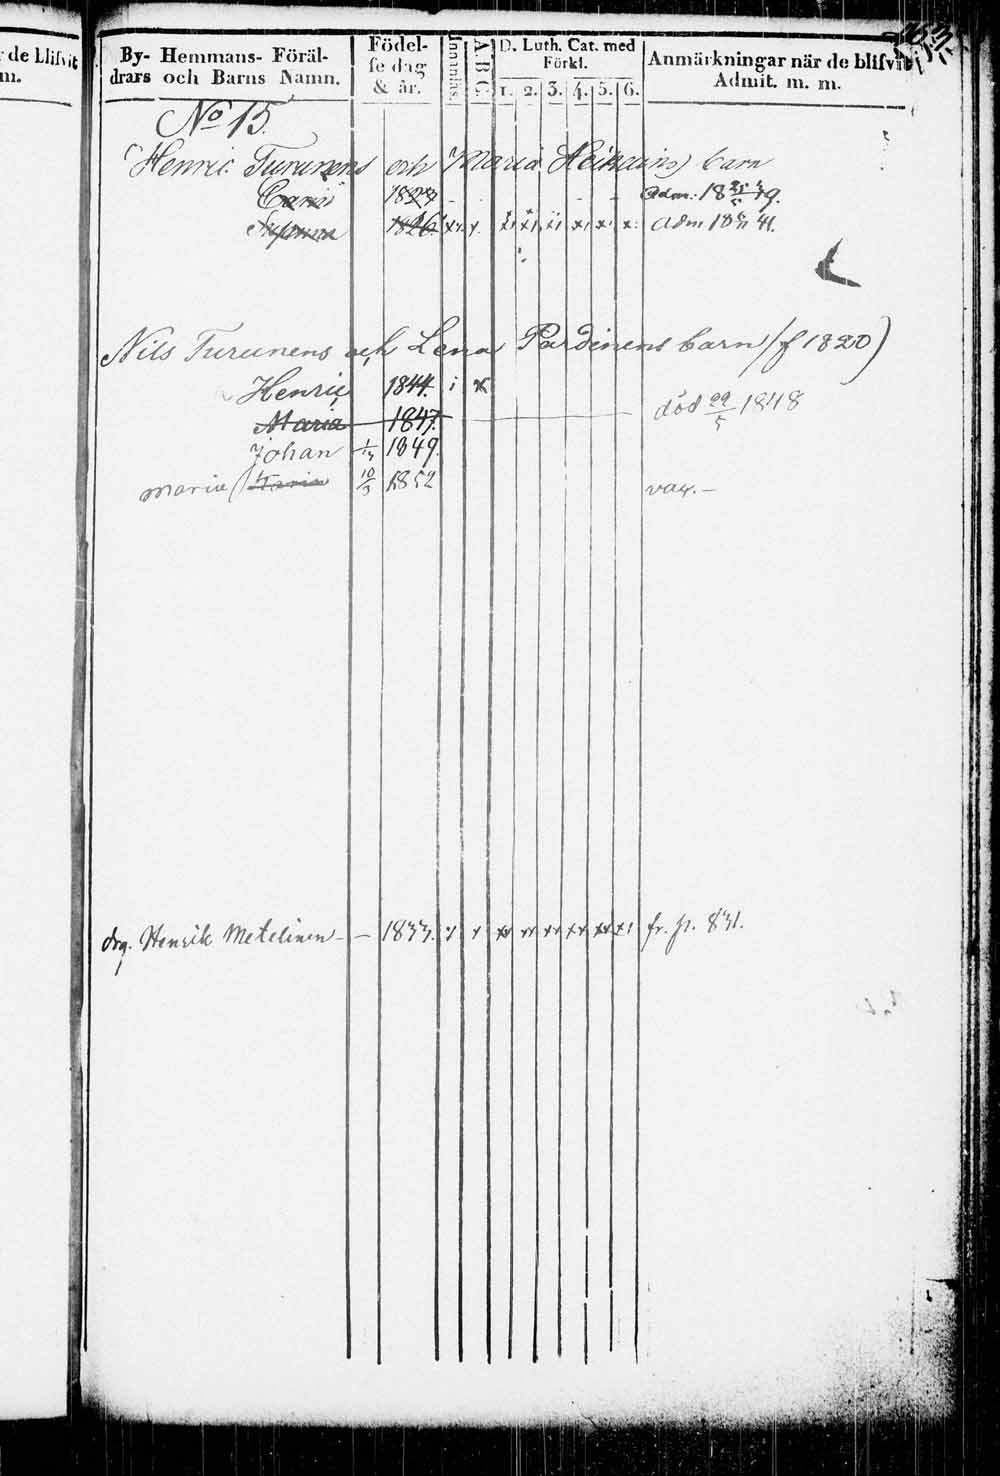 de blifvit
m.
By- Hemmans- Föräl-
drars och Barns Namn.
Födel-
se dag
& år.
Innanläs.
A.B.C.
D. Luth. Cat. med
Förkl.
1. 2. 3. 4. 5. 6.
Anmärkningar när de blifvit
Admit. m. m.
No 15.
Henric Turunens och Maria Heikcains barn
Carin 18 Adm: 18 39.
1826. x x x x x x x x adm 18 41.
Nils Turunens och Lena Pardinens barn (f 1820)
Henric 1844. i x
Maria 1847. död 29/5 1848
Johan 1849.
maria Maria 10/3 1852 vac. –
drg. Henrik Metelinen – – 1833. x x xx xx xx xx xx x1 fr. p. 831.